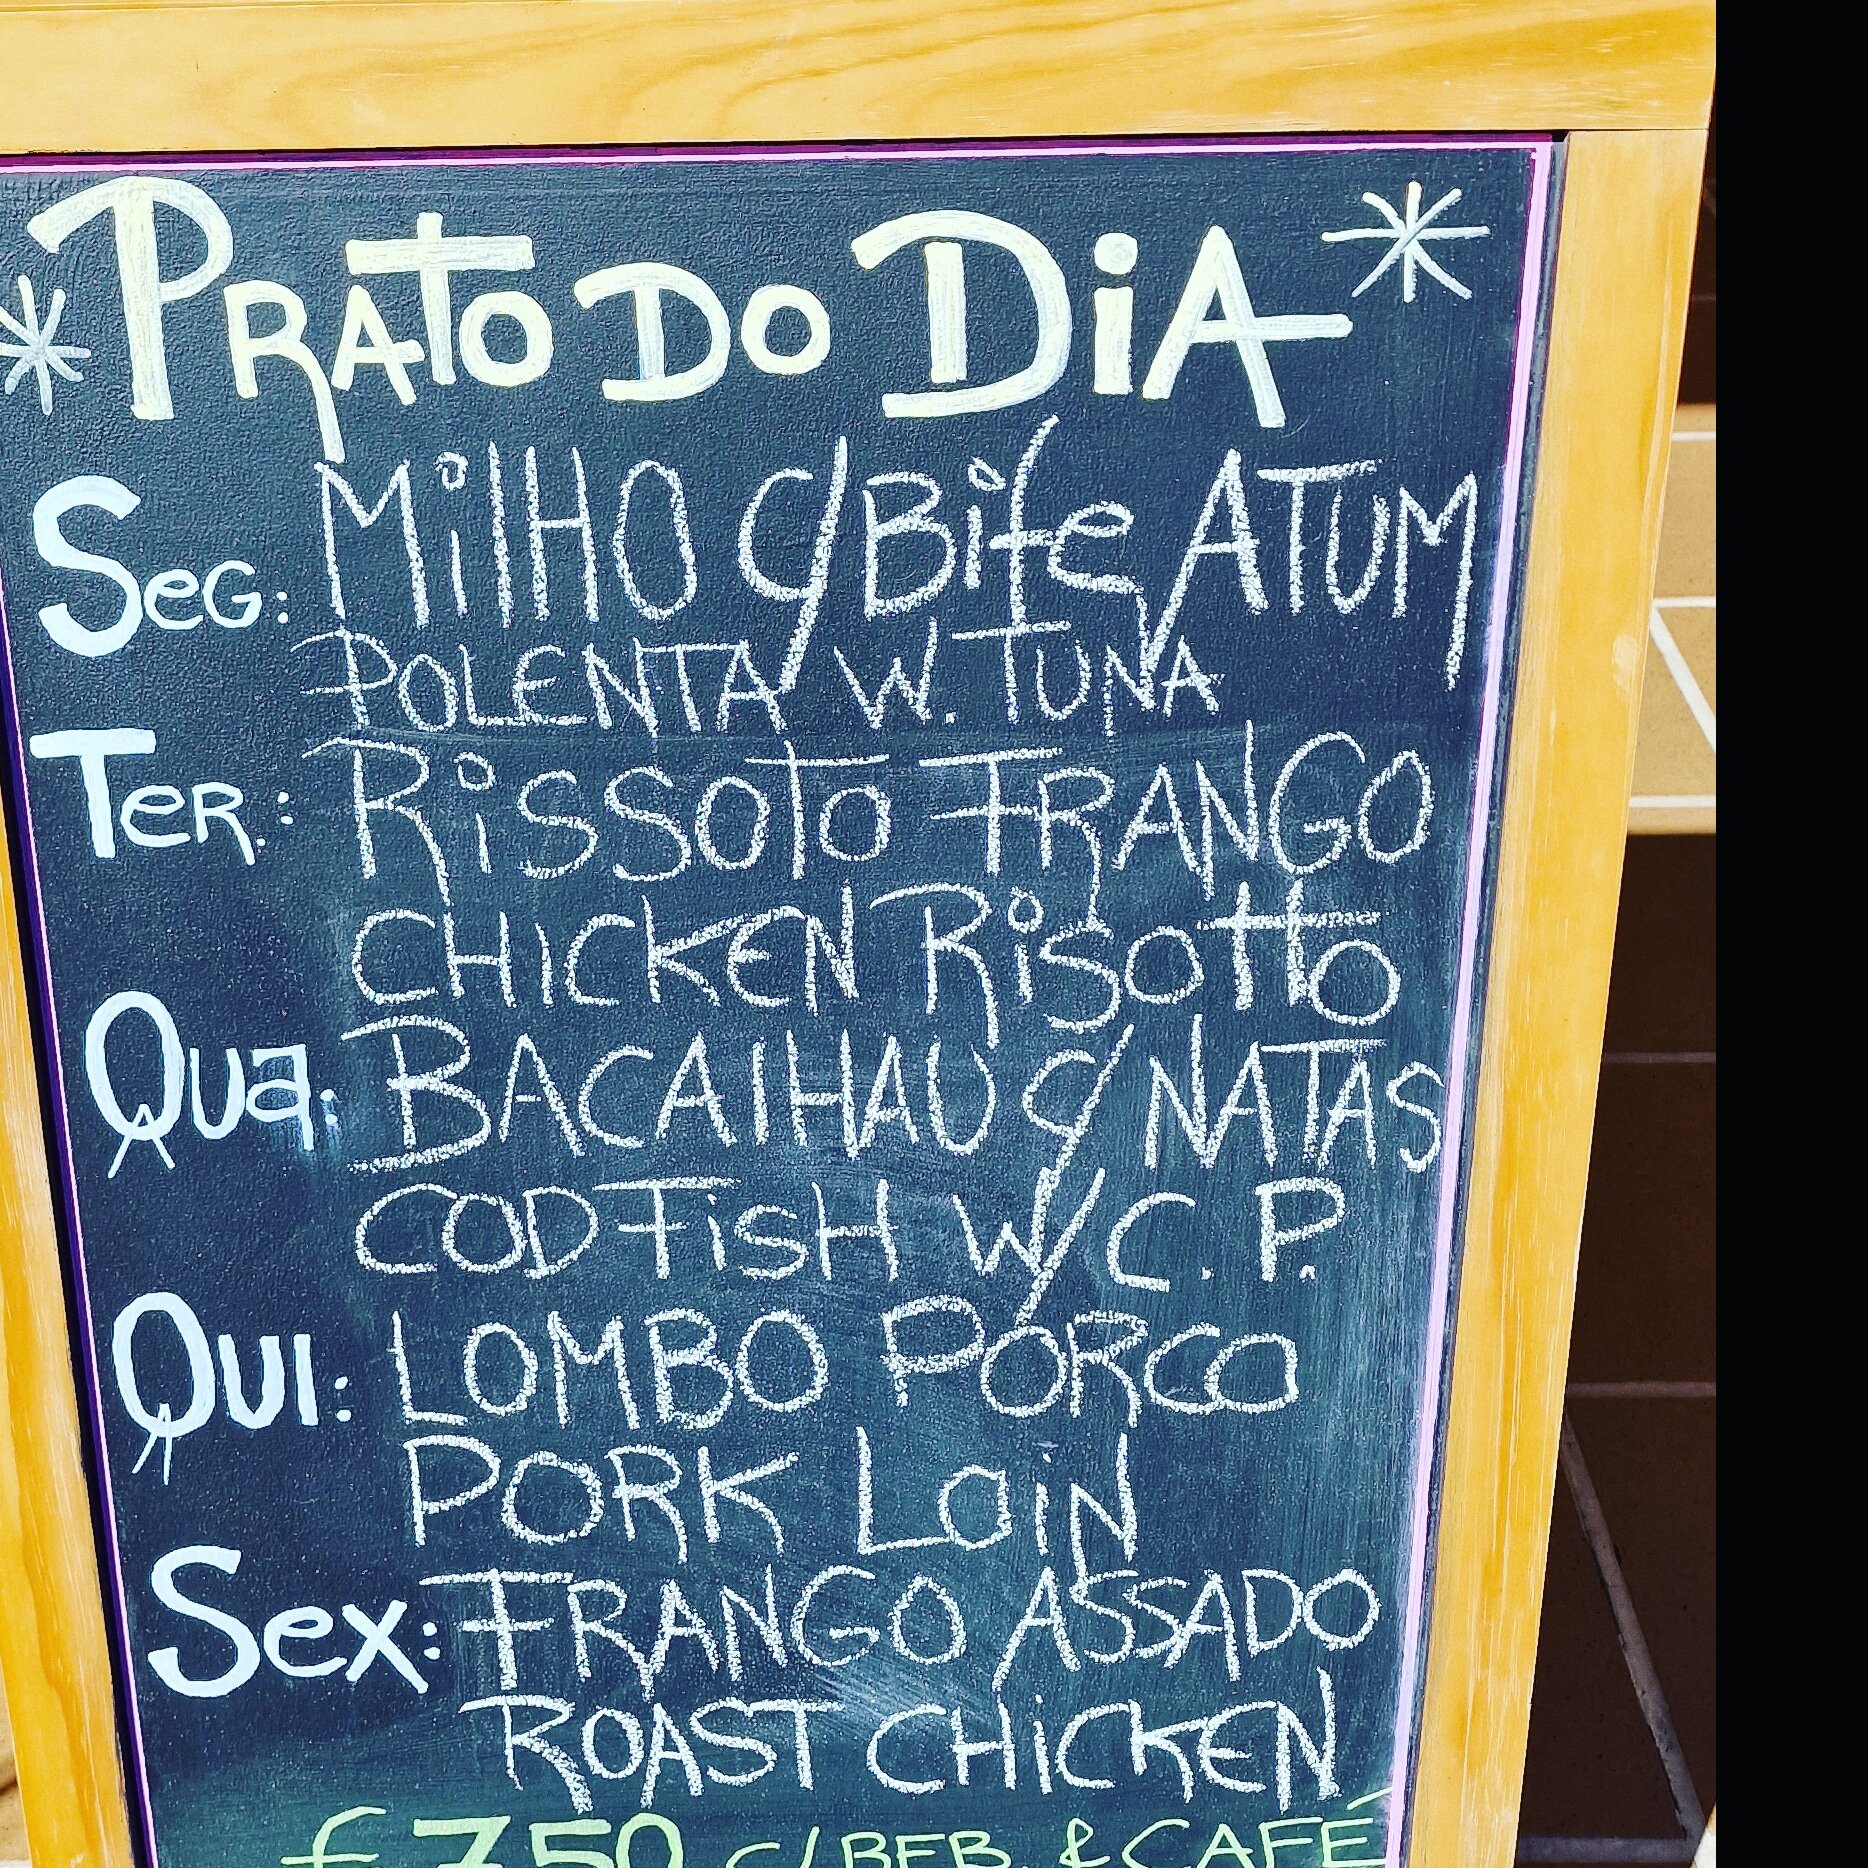 *PRATO DO DiA*
SeG: MilHO C/ Bife ATUM
POLENTA W. TUNA
TeR: RiSSOTO FRANGO
CHICKEN RiSOTTO
QUa: BACAlHAU C/ NATAS
CODFiSH W/ C. P.
QUI: LOMBO PORCO
PORK LOiN
Sex: FRANGO ASSADO
ROAST CHiCKEN
€ 7.50 C/ BEB. & CAFÉ